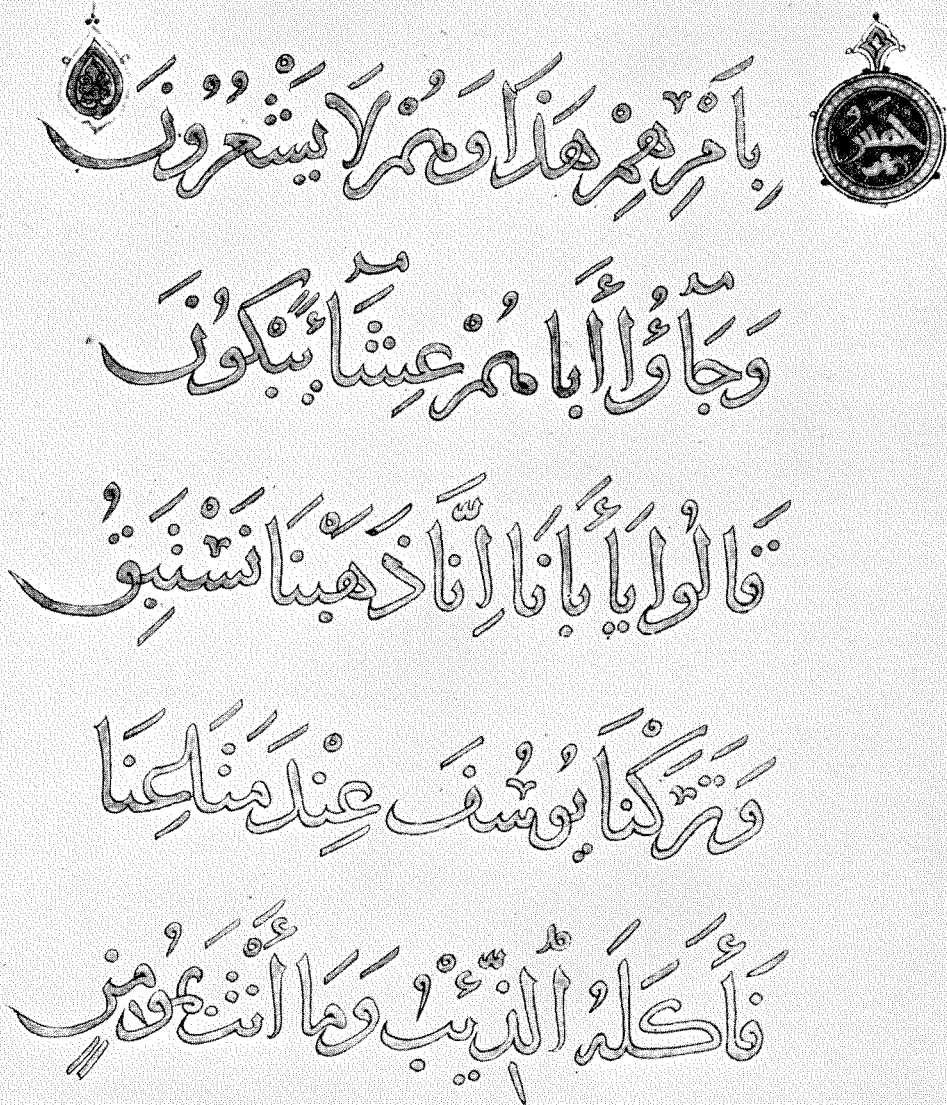 بِأَمْرِهِمْ هَذَا وَهُمْ لَا يَشْعُرُونَ
وَجَآؤُا أَبَاهُمْ عِشَآءً يَبْكُونَ
قَالُوا يَا أَبَانَا إِنَّا ذَهَبْنَا نَسْتَبِقُ
وَتَرَكْنَا يُوسُفَ عِنْدَ مَتَاعِنَا
فَأَكَلَهُ الذِّئْبُ وَمَا أَنْتَ بِمُؤْمِنٍ